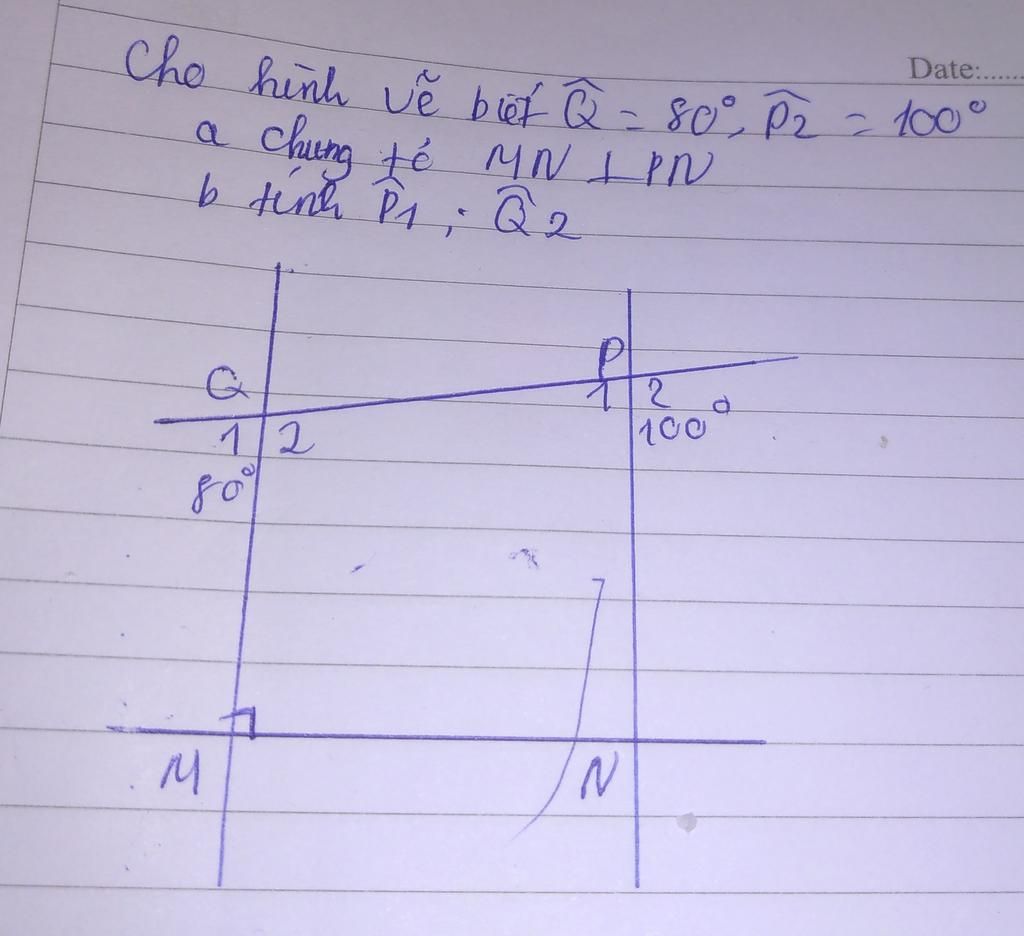 Date:......
Cho hình vẽ biết Q̂ = 80°, P̂2 = 100°
a chứng tỏ MN ⊥ PN
b tính P̂1 ; Q̂2
Q P
1 2 1 2
80° 100°
M N